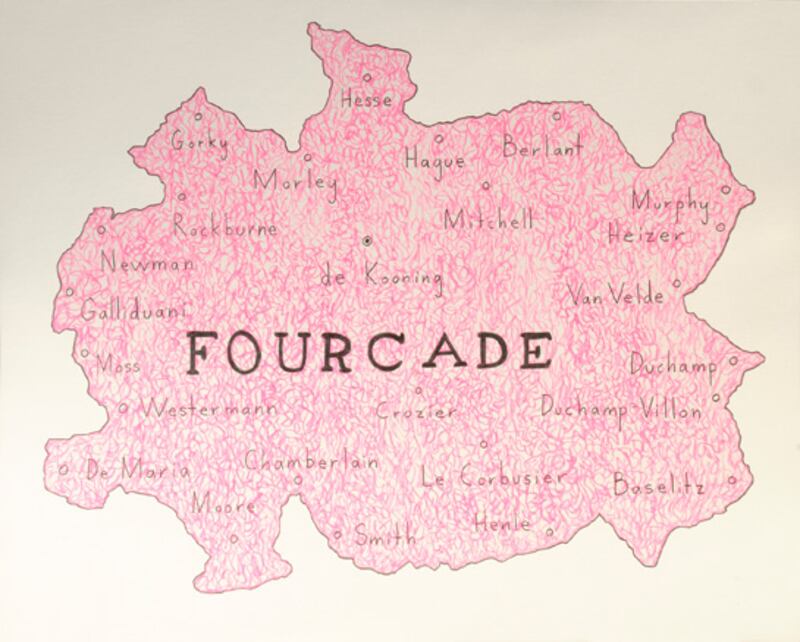 Hesse
Gorky
Hague
Berlant
Morley
Murphy
Mitchell
Rockburne
Heizer
Newman
de Kooning
Van Velde
Galliduani
FOURCADE
Moss
Duchamp
Westermann
Crozier
Duchamp-Villon
De Maria
Chamberlain
Le Corbusier
Baselitz
Moore
Henle
Smith